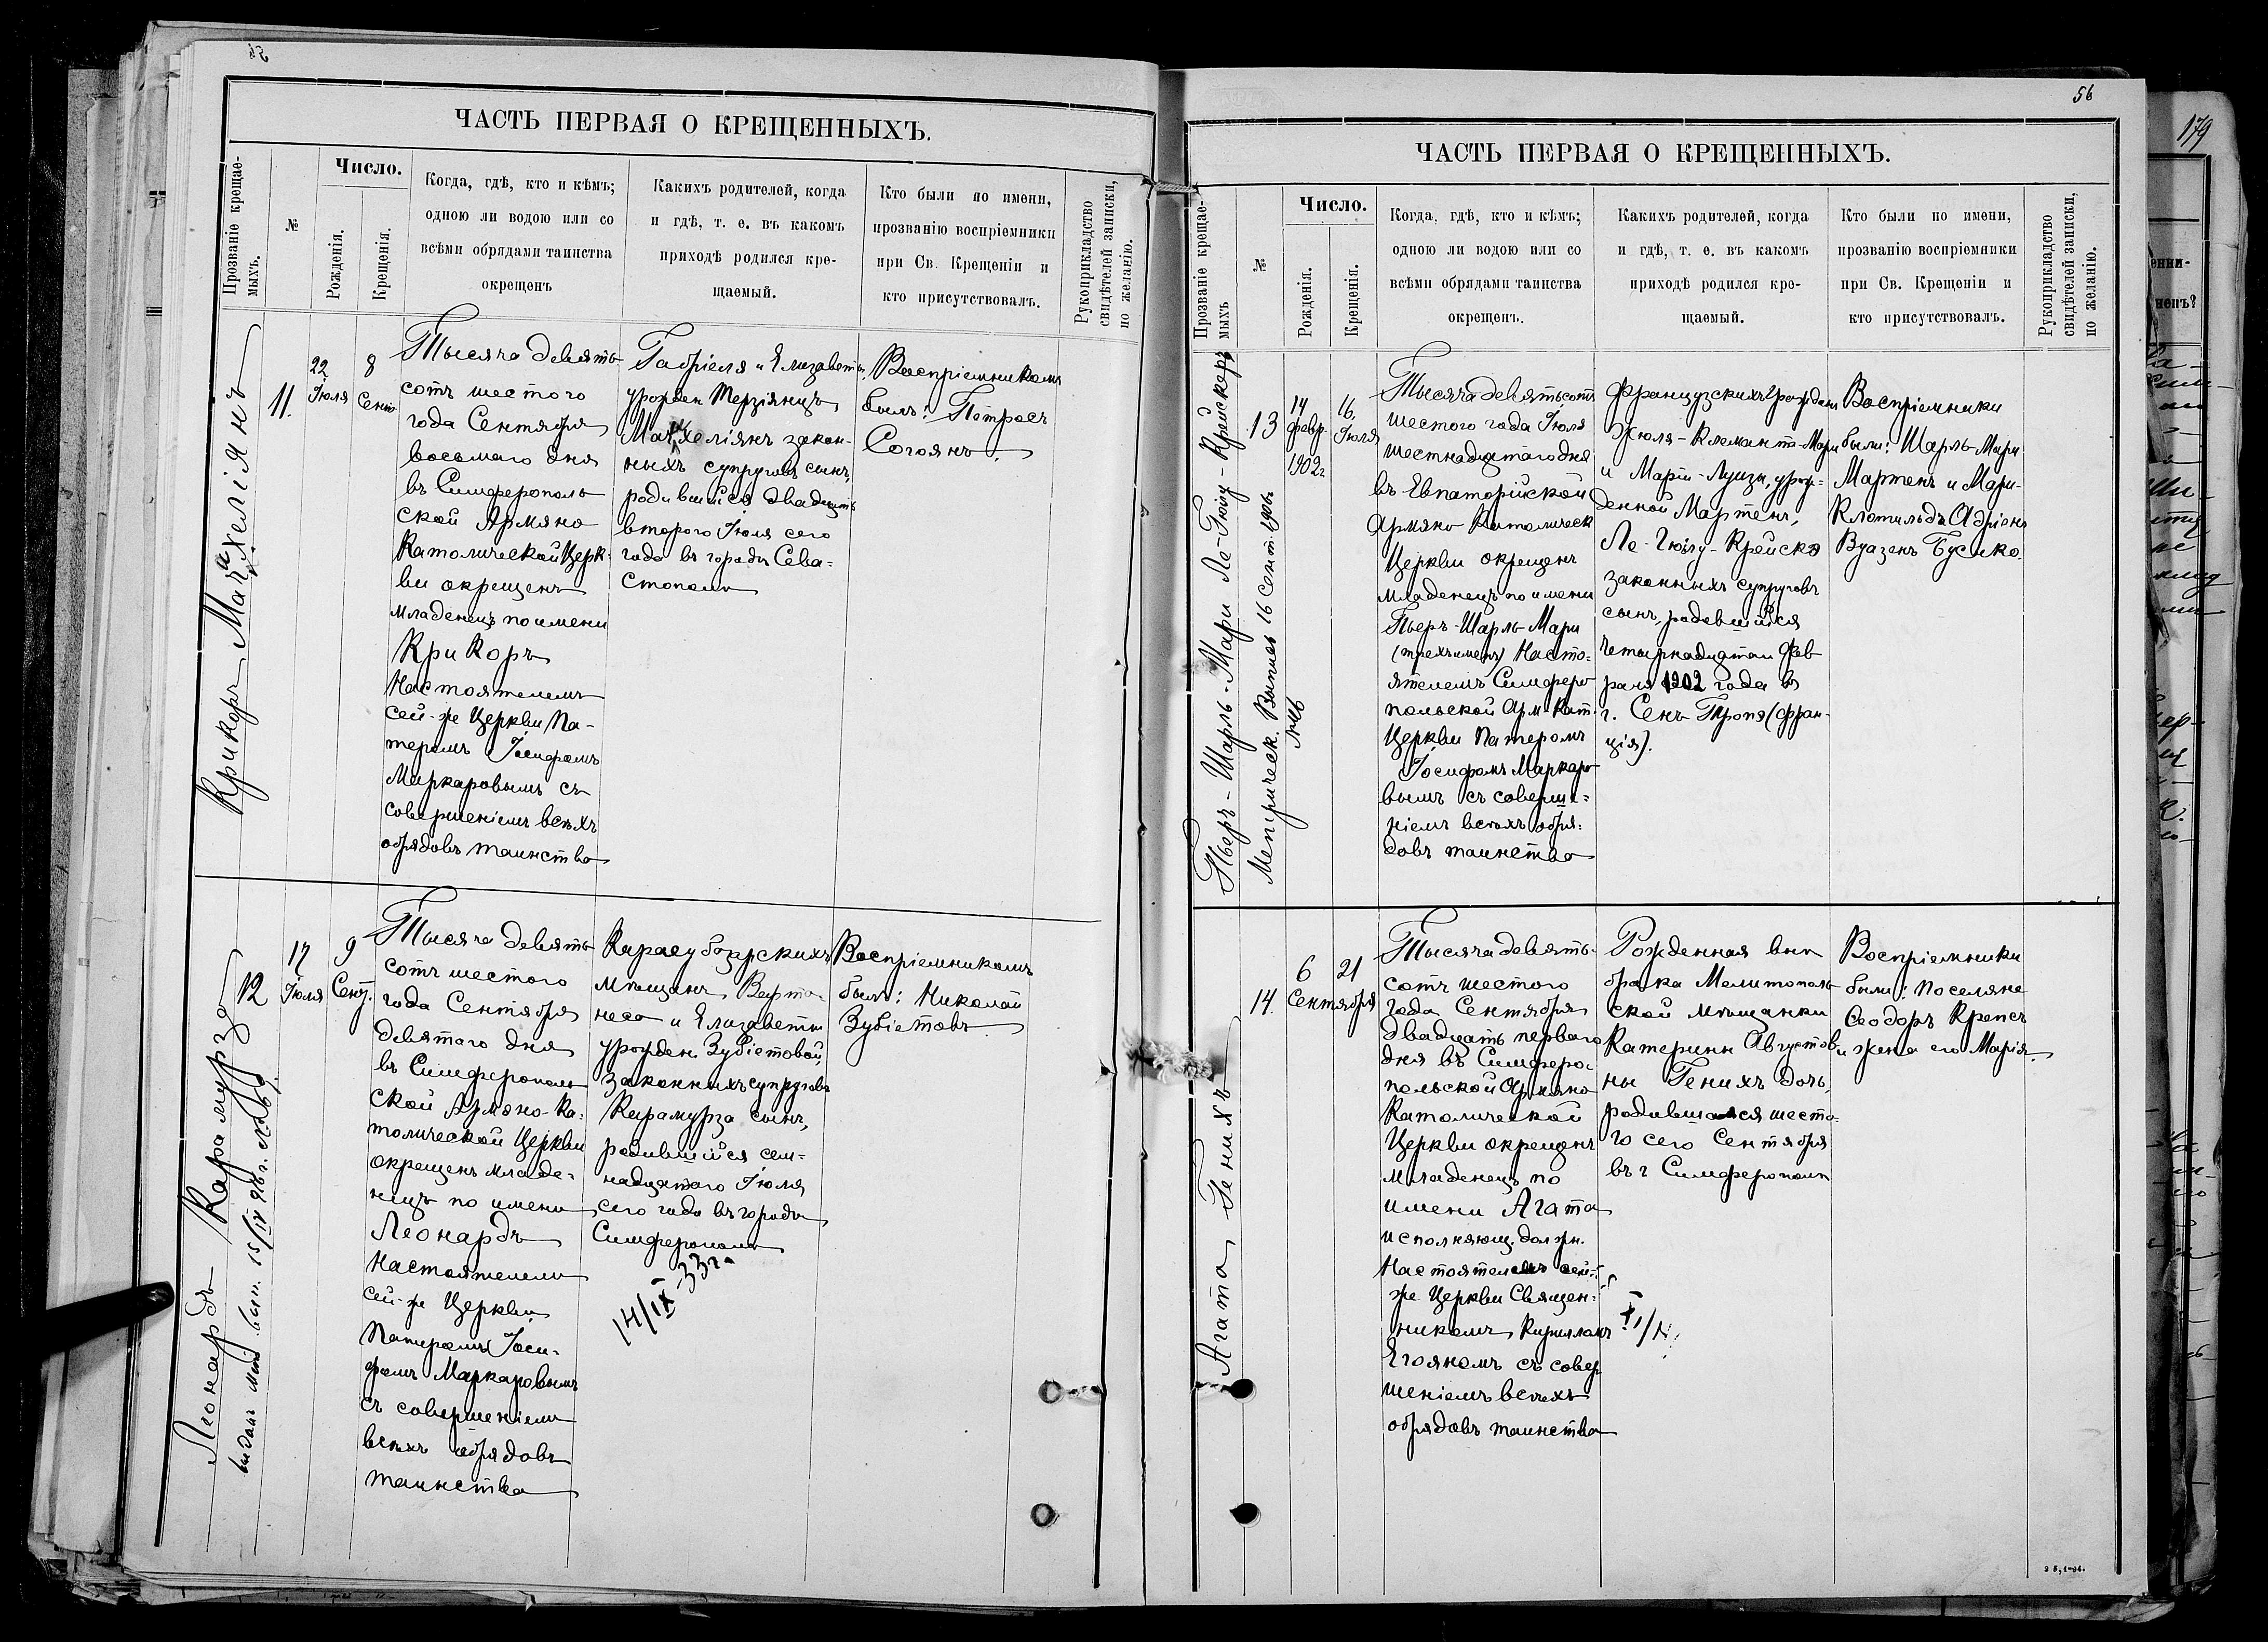 ЧАСТЬ ПЕРВАЯ О КРЕЩЕННЫХЪ.
Прозваніе крещае-
мыхъ.
№
Число.
Рожденія.
Крещенія.
Когда, гдѣ, кто и кѣмъ;
одною ли водою или со
всѣми обрядами таинства
окрещенъ
Какихъ родителей, когда
и гдѣ, т. е. въ какомъ
приходѣ родился кре-
щаемый.
Кто были по имени,
прозванію воспріемники
при Св. Крещеніи и
кто присутствовалъ.
Рукоприкладство
свидѣтелей записки,
по желанію.
Крикоръ
11.
22
Іюля
8
Сент.
Тысяча девять-
сотъ шестого
года Сентября
восьмаго дня
въ Симферополь
ской Армяно
Католической Церк-
ви окрещенъ
младенецъ по имени
Крикоръ
Настоятелемъ
сей-же Церкви Па-
теромъ Іосифомъ
Маркаровымъ съ
совершеніемъ всѣхъ
обрядовъ таинства
Габріеля и Елизаветы,
урожден Терзіянцъ,
закон-
ныхъ супруговъ сынъ,
родившійся двадцать
второго Іюля сего
года въ городѣ Сева-
стополѣ
Воспріемникомъ
былъ: Петросъ
Согоянъ.
Леонардъ Карамурза
12
17
Іюля
9
Сент.
Тысяча девять
сотъ шестого
года Сентября
девятаго дня
въ Симферополь
ской Армяно-Ка-
толической Церкви
окрещенъ младе-
нецъ по имени
Леонардъ
Настоятелемъ
сей-же Церкви
Патеромъ Іоси-
фомъ Маркаровымъ
съ совершеніемъ
всѣхъ обрядовъ
таинства
Карасубазарскихъ
мѣщанъ Варта-
неса и Елизаветы
урожден. Зубіетовой,
законныхъ супруговъ
Карамурза сынъ,
родившійся сем-
надцатаго Іюля
сего года въ городѣ
Симферополѣ
14/IX-33г.
Воспріемникомъ
былъ: Николай
Зубіетовъ
56
179
ЧАСТЬ ПЕРВАЯ О КРЕЩЕННЫХЪ.
Прозваніе крещае-
мыхъ
№
Число.
Рожденія.
Крещенія.
Когда, гдѣ, кто и кѣмъ;
одною ли водою или со
всѣми обрядами таинства
окрещенъ.
Какихъ родителей, когда
и гдѣ, т. е. въ какомъ
приходѣ родился кре-
щаемый.
Кто были по имени,
прозванію воспріемники
при Св. Крещеніи и
кто присутствовалъ.
Рукоприкладство
свидѣтелей записки,
по желанію.
Пьеръ-Шарль-Мари
13
14
февр.
1902г.
16.
Іюля
Тысяча девятьсотъ
шестого года Іюля
шестнадцатаго дня
въ Евпаторійской
Армяно Католическ
Церкви окрещенъ
младенецъ по имени
Пьеръ-Шарль-Мари
(трехъименъ) Насто-
ятелемъ Симферо
польской Арм-Кат.
Церкви Патеромъ
Іосифомъ Маркаро
вымъ съ соверше-
ніемъ всѣхъ обря-
довъ таинства
Французскихъ Гражданъ
Жюля-Клемантъ-Мари
и Маріи-Луизы, урож-
денной Мартенъ,
законныхъ супруговъ
сынъ, родевшійся
Четырнадцатаи Фев
раля 1902 года въ
г. Сенъ Тропэ (Фран-
ція).
Воспріемники
были: Шарль-Мари
Мартенъ и Мари-
Клотильдъ Адріенъ
Вуазенъ
Агата Генихъ
14.
6
21
Сентября
Тысяча девять-
сотъ шестого
года Сентября
двадцать перваго
дня въ Симферо-
польской Армяно
Католической
Церкви окрещенъ
младенецъ по
имени Агата
исполняющ. должн.
Настоятелемъ сей-
же Церкви Священ-
никомъ Кирилломъ
Егояномъ съ совер
шеніемъ всѣхъ
обрядовъ таинства
Рожденная внѣ
брака Мелитополь
ской мѣщанки
Катерины Августов
ны Генихъ дочь,
родившаяся шеста-
го сего Сентября
въ г Симферополѣ
Воспріемники
были: поселяне
Ѳеодоръ Крепсъ
и жена его Марія.